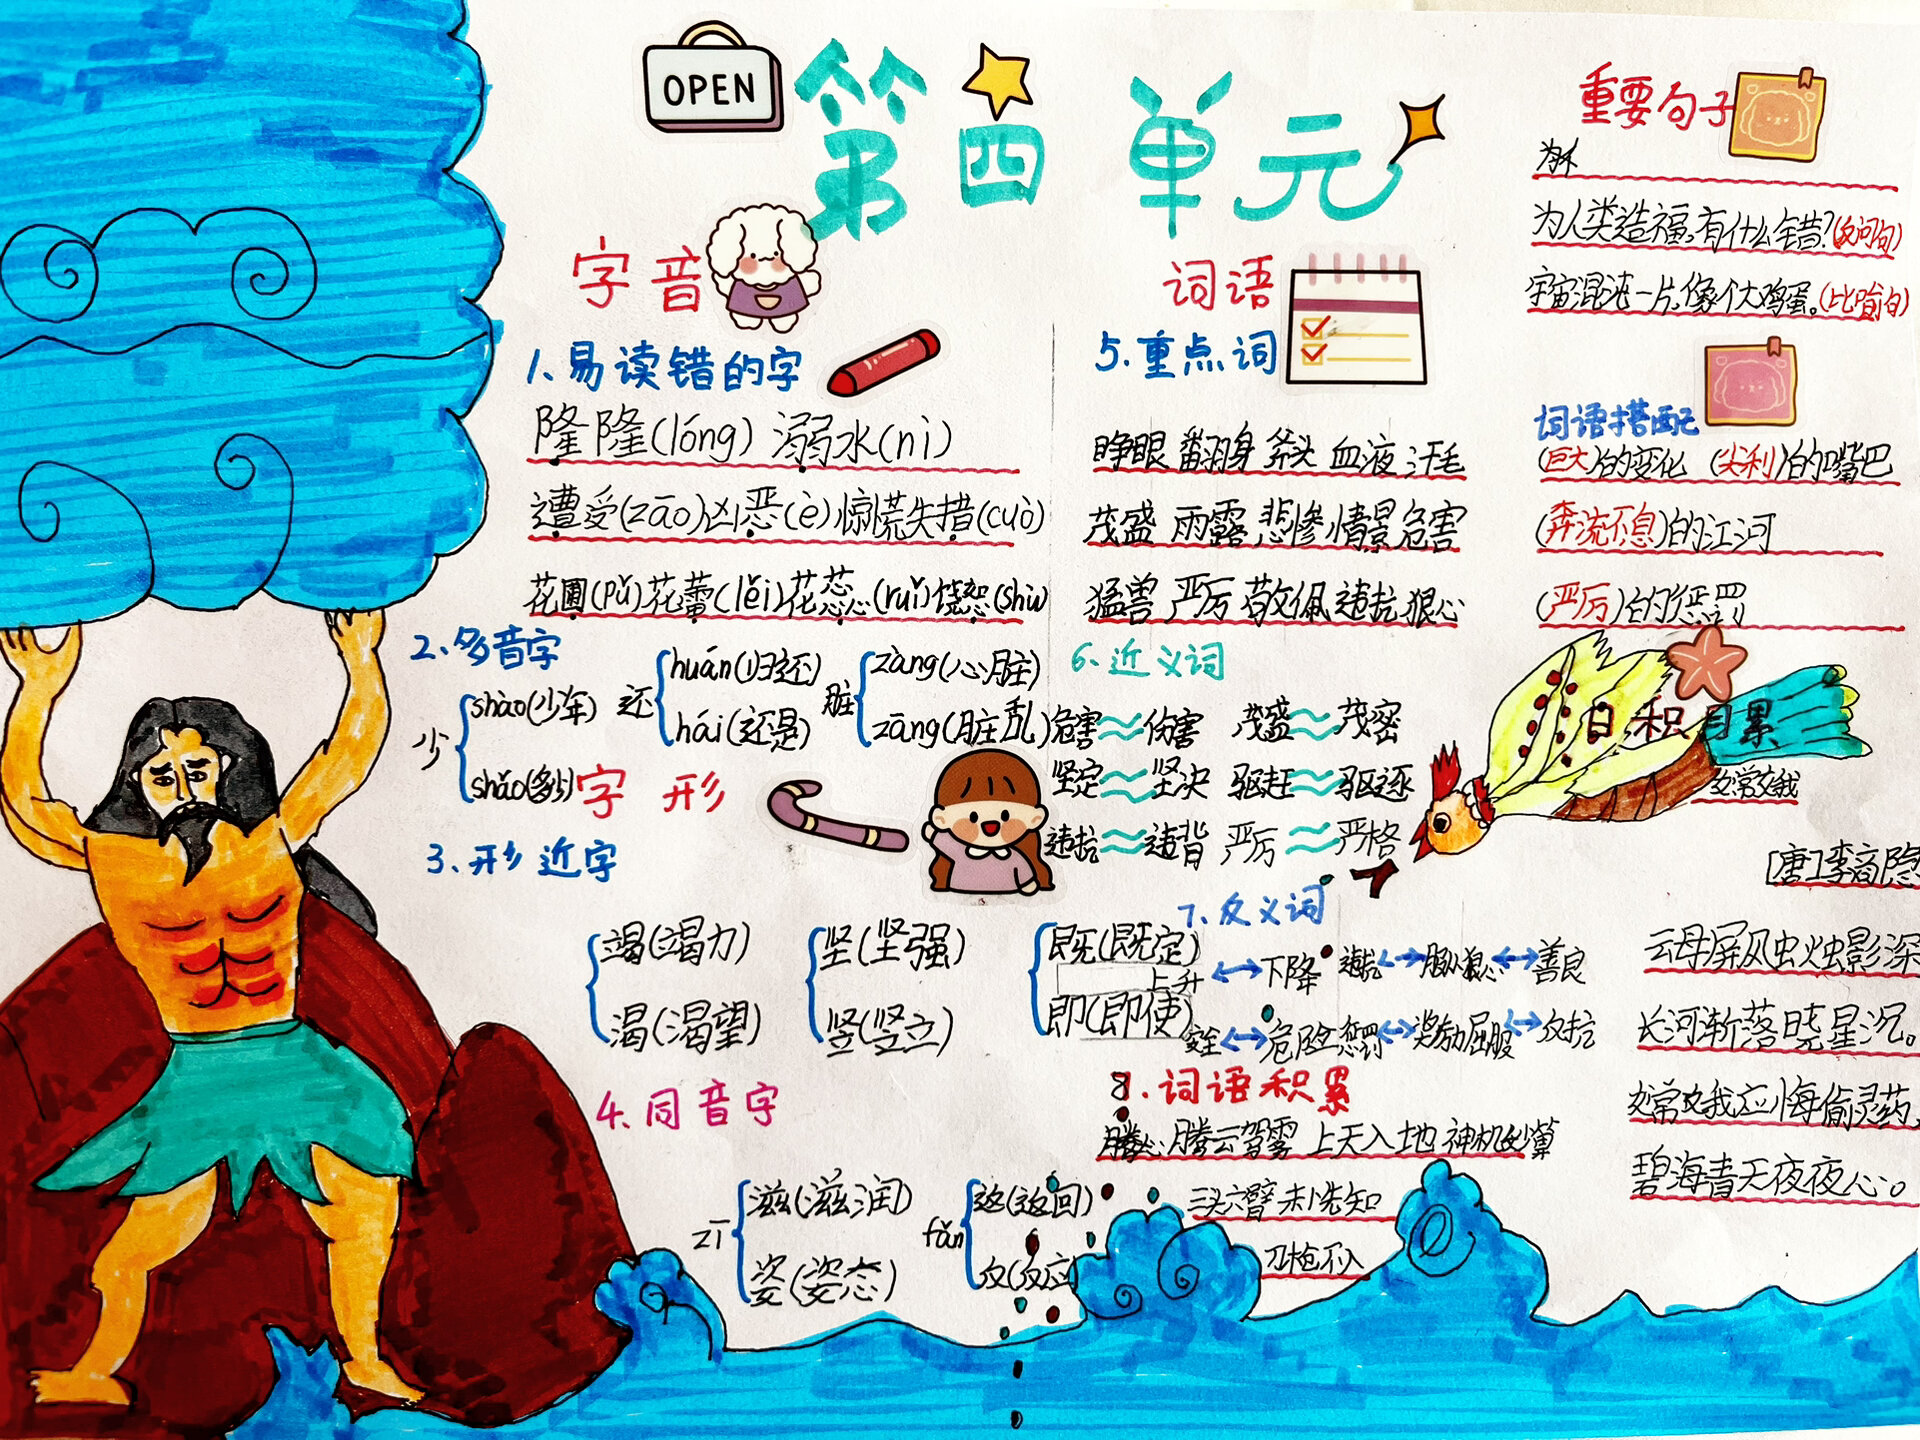 OPEN
第四单元
字音
1、易读错的字
隆隆(lóng) 溺水(nì)
遭受(zāo)凶恶(è)惊慌失措(cuò)
花圃(pǔ)花蕾(lěi)花蕊(ruǐ)饶恕(shù)
2、多音字
少
shào(少年)
shǎo(多少)
还
huán(归还)
hái(还是)
脏
zàng(心脏)
zāng(脏乱)
字形
3、形近字
竭(竭力)
渴(渴望)
坚(坚强)
竖(竖立)
既(既定)
即(即使)
4、同音字
zī
滋(滋润)
姿(姿态)
fǎn
返(返回)
反(反应)
词语
5、重点词
睁眼 翻身 斧头 血液 汗毛
茂盛 雨露 悲惨 情景 危害
猛兽 严厉 敬佩 违抗 狠心
6、近义词
危害≈伤害 茂盛≈茂密
坚定≈坚决 驱赶≈驱逐
违抗≈违背 严厉≈严格
7、反义词
上升↔下降 狠心↔善良
安全↔危险 惩罚↔奖励 屈服↔反抗
8、词语积累
腾云驾雾 上天入地 神机妙算
三头六臂 未卜先知
刀枪不入
重要句子
为人类造福,有什么错?(反问句)
宇宙混沌一片,像个大鸡蛋。(比喻句)
词语搭配
(巨大)的变化 (尖利)的嘴巴
(奔流不息)的江河
(严厉)的惩罚
日积月累
[唐]李商隐
云母屏风烛影深
长河渐落晓星沉。
嫦娥应悔偷灵药,
碧海青天夜夜心。